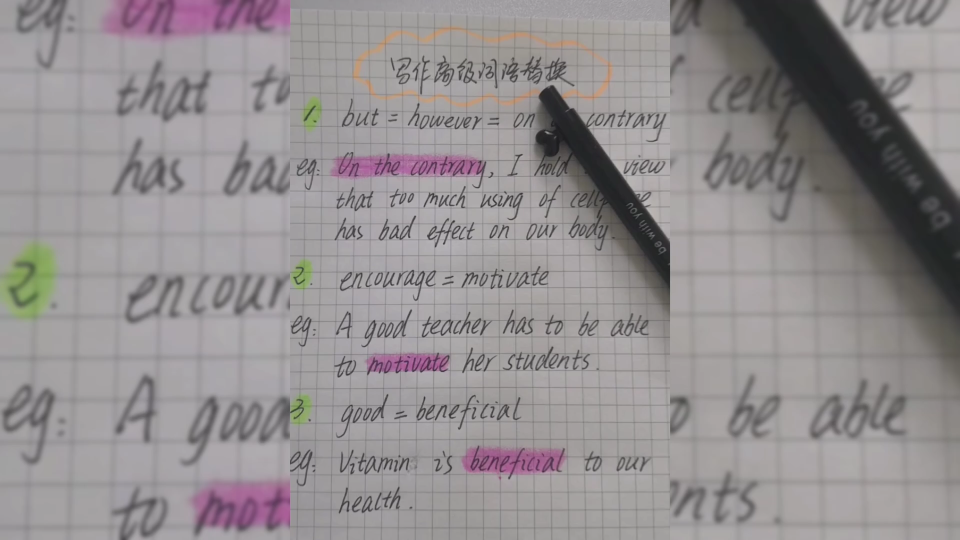 写作高级词语替换
1. but = however = on contrary
eg: On the contrary, I hold view
that too much using of cell
has bad effect on our body.
be with you
2. encourage = motivate
eg: A good teacher has to be able
to motivate her students.
3. good = beneficial
eg: Vitamin is beneficial to our
health.